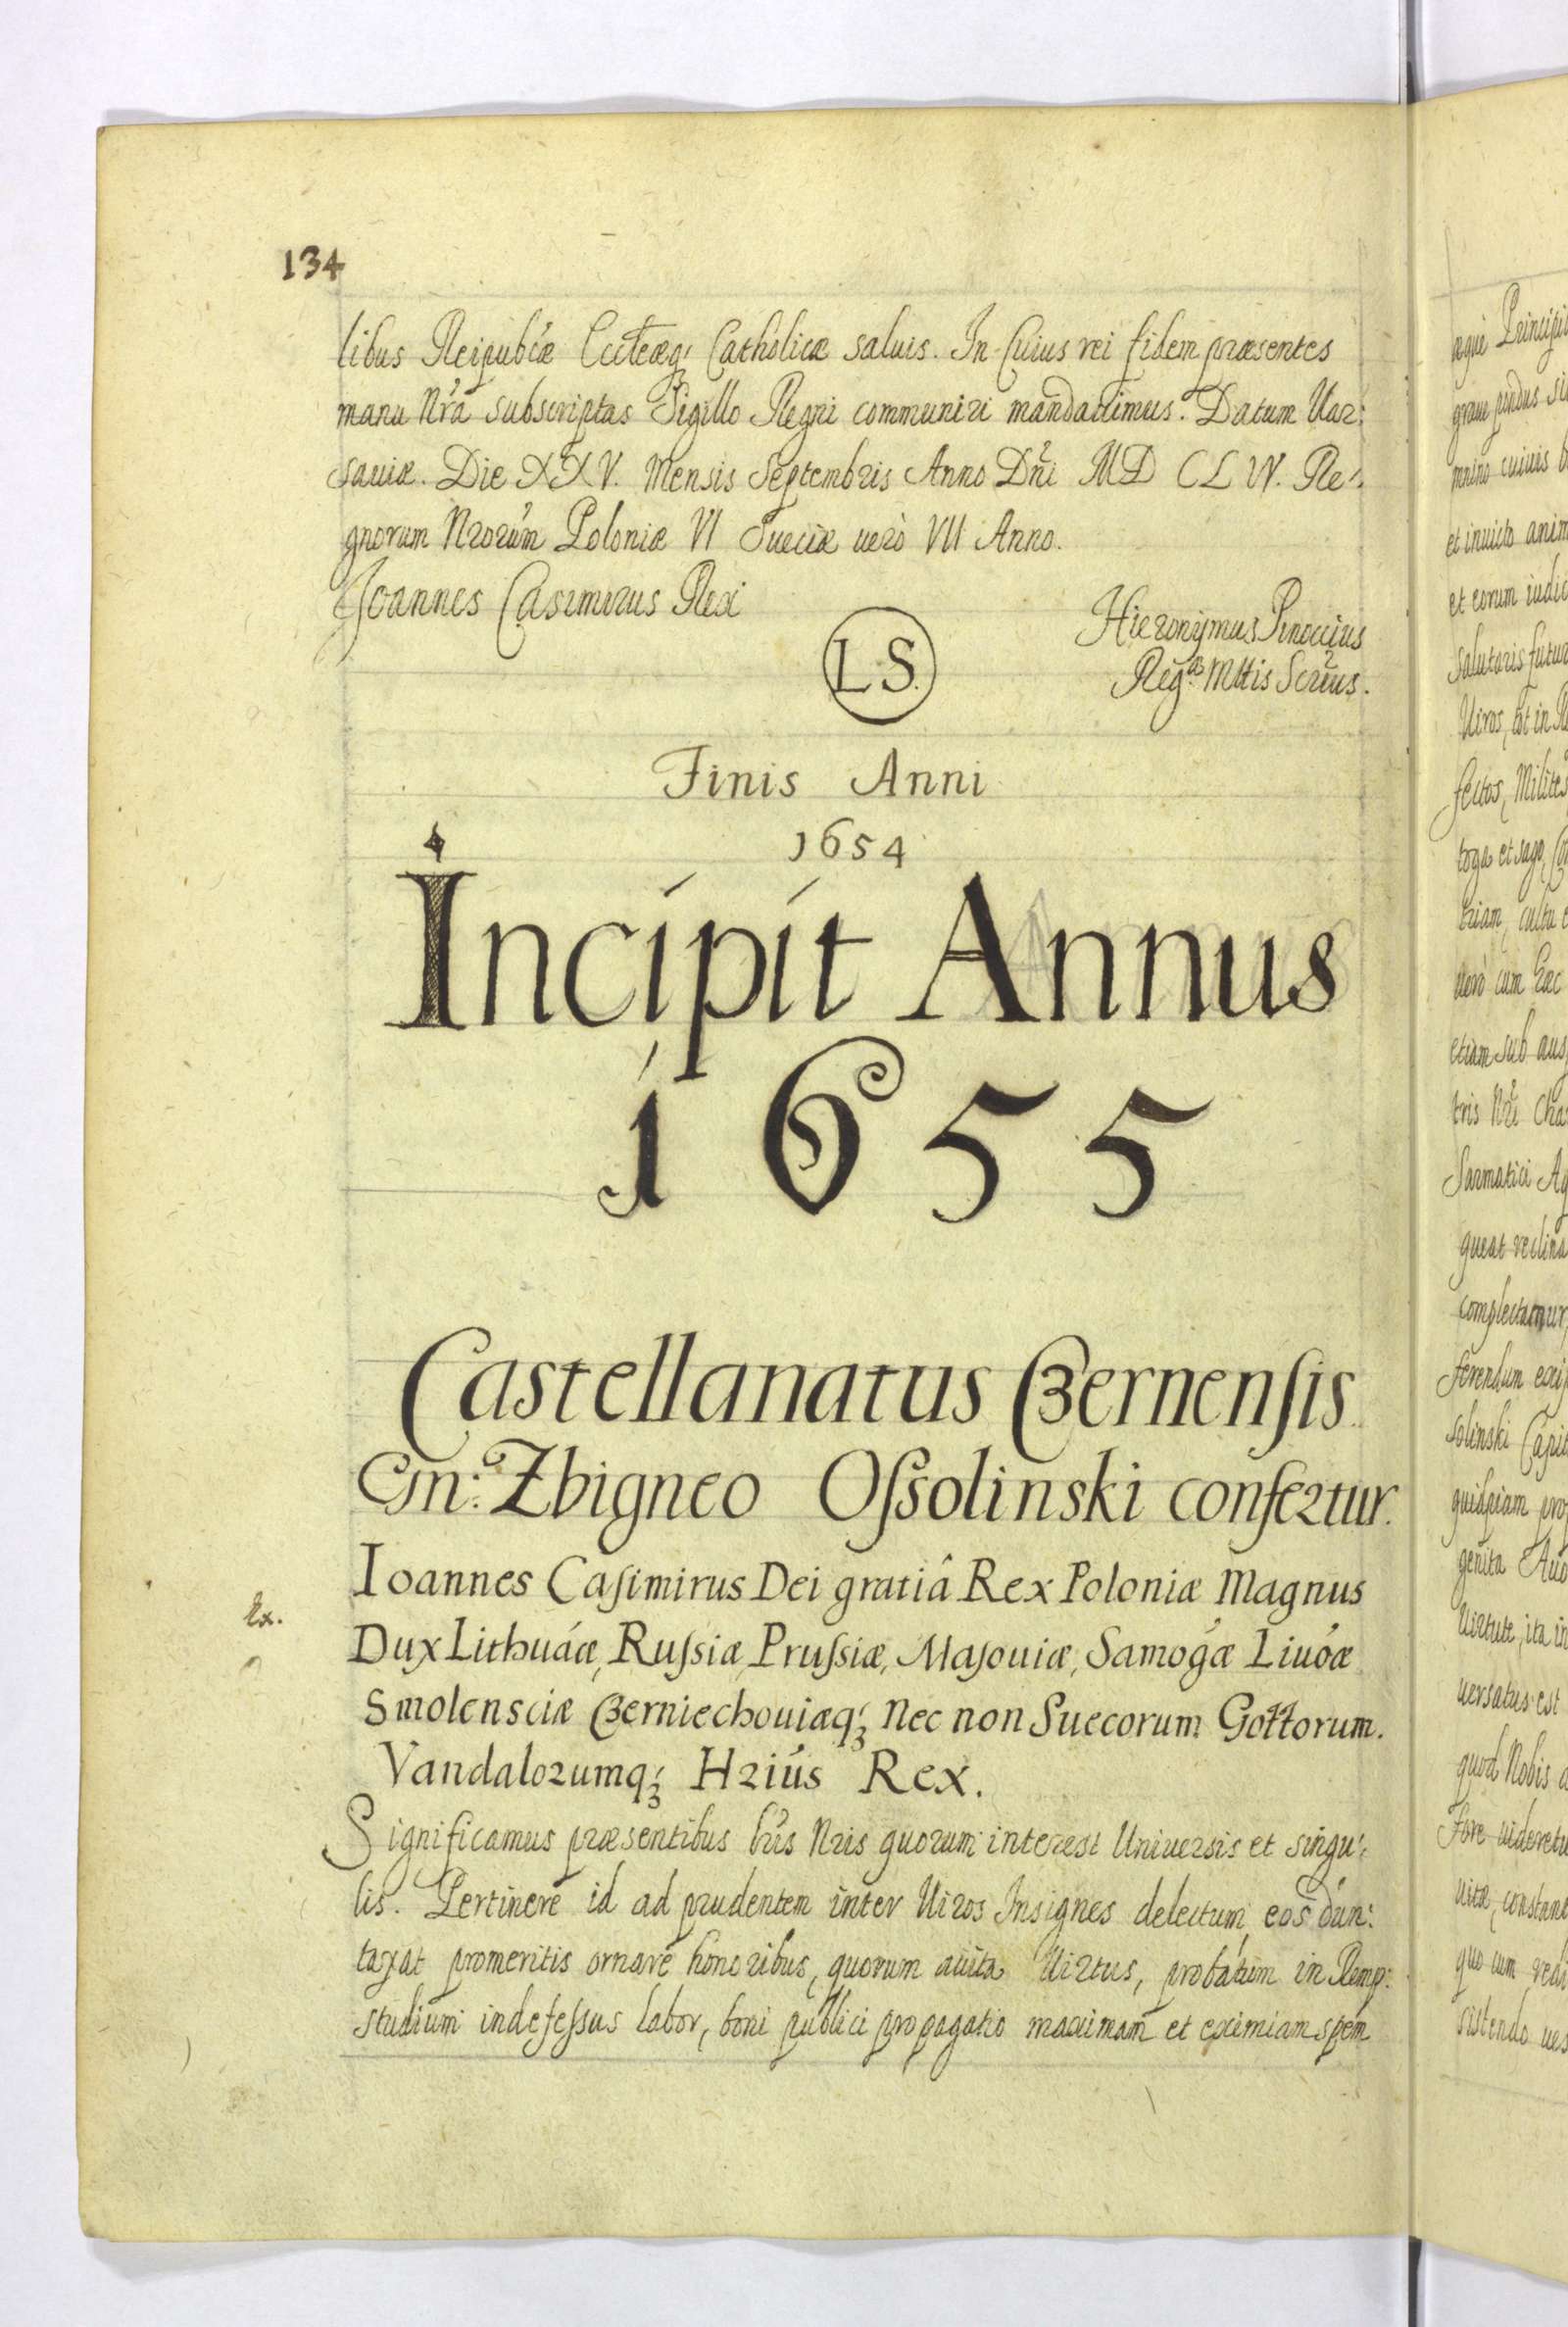 134
libus Reipubćæ Eccleæq; Catholicæ saluis. In Cuius rei fidem præsentes
manu Nrã subscriptas Sigillo Regni communiri mandauimus. Datum Uar:
sauiæ. Die XXV. Mensis Septembris Anno Dñi MD CLIV. Re:
gnorum Nrorũm Poloniæ VI Sueciæ uerò VII Anno.
Joannes Casimirus Rex
Hieronymus Pinoccius
LS.
Reg:æ Mttis Scrius.
Finis Anni
1654
Incipit Annus
1655
Castellanatus Czernensis
Gn: Zbigneo Ossolinski confertur.
Ioannes Casimirus Dei gratiâ Rex Poloniæ Magnus
Ex.
Dux Lithuáæ, Russiæ, Prussiæ, Masouiæ, Samogáæ Liuóæ
Smolensciæ Czerniechouiæq; Nec non Suecorum Gottorum.
Vandalorumq; Hriús Rex.
Significamus præsentibus lris Nris quorum interest Uniuersis et singu:
lis. Pertinere id ad prudentem inter Uiros Insignes delectum, eos dun:
taxat promeritis ornare honoribus, quorum auita Uirtus, probatum in Remp:
studium indefessus labor, boni publici propagatio maximam et eximiam spem
æqui
graue pondus
mnino cuiuis
et inuicto anim
et eorum iudic
salutaris futur
Uiros, tot in
fectos, Milites
toga et sago,
triam, cultu
uerò cum
etiam sub aus
tris Nri
Sarmatici
queat reclina
complectamur,
ferendum
solinski Capit
quispiam pro
genita
Uirtute, ita in
uersatus est
quod Nobis
fore uideretu
uitæ, constant
quo cum
sistendo